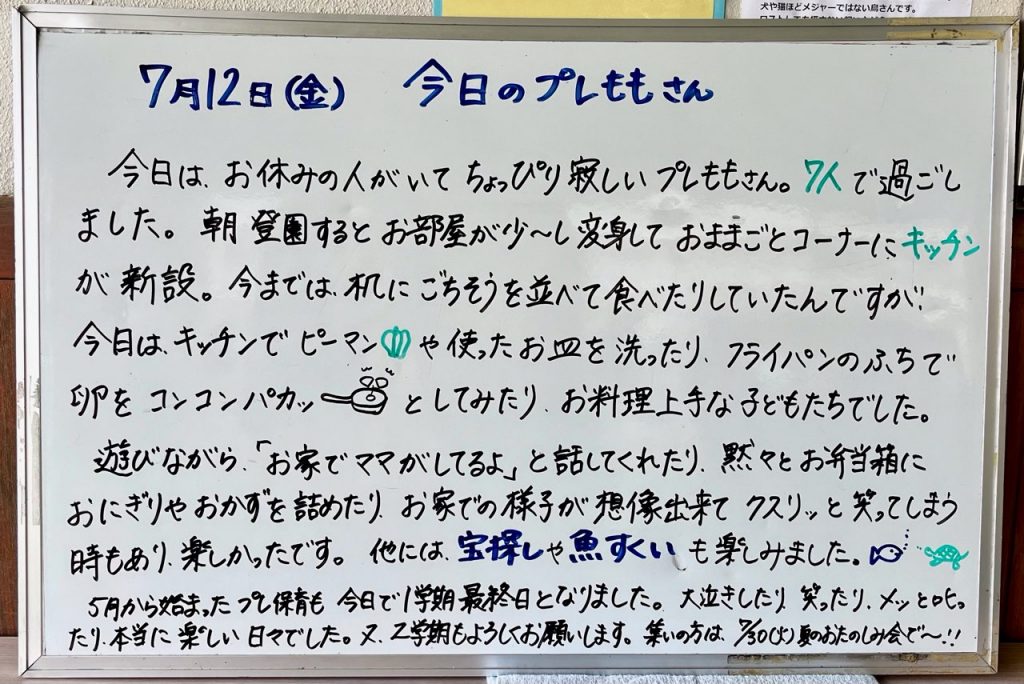 犬や猫ほどメジャーではない鳥さんです。
7月12日(金) 今日のプレももさん
今日は、お休みの人がいて ちょっぴり寂しいプレももさん。7人で過ごし
ました。朝 登園すると お部屋が少〜し変身して おままごとコーナーにキッチン
が新設。今までは、机に ごちそうを並べて食べたりしていたんですが、
今日は、キッチンで ピーマンや使ったお皿を洗ったり、フライパンのふちで
卵を コンコンパカッ としてみたり、お料理上手な子どもたちでした。
遊びながら、「お家でママがしてるよ」と話してくれたり、黙々とお弁当箱に
おにぎりやおかずを詰めたり、お家での様子が想像出来て クスリッと笑ってしまう
時もあり、楽しかったです。他には、宝探しや魚すくいも楽しみました。
5月から始まったプレ保育も 今日で1学期最終日となりました。大泣きしたり、笑ったり、メッと叱っ
たり、本当に楽しい日々でした。又、2学期もよろしくお願いします。集いの方は、7/30(火)夏のおたのしみ会で〜!!